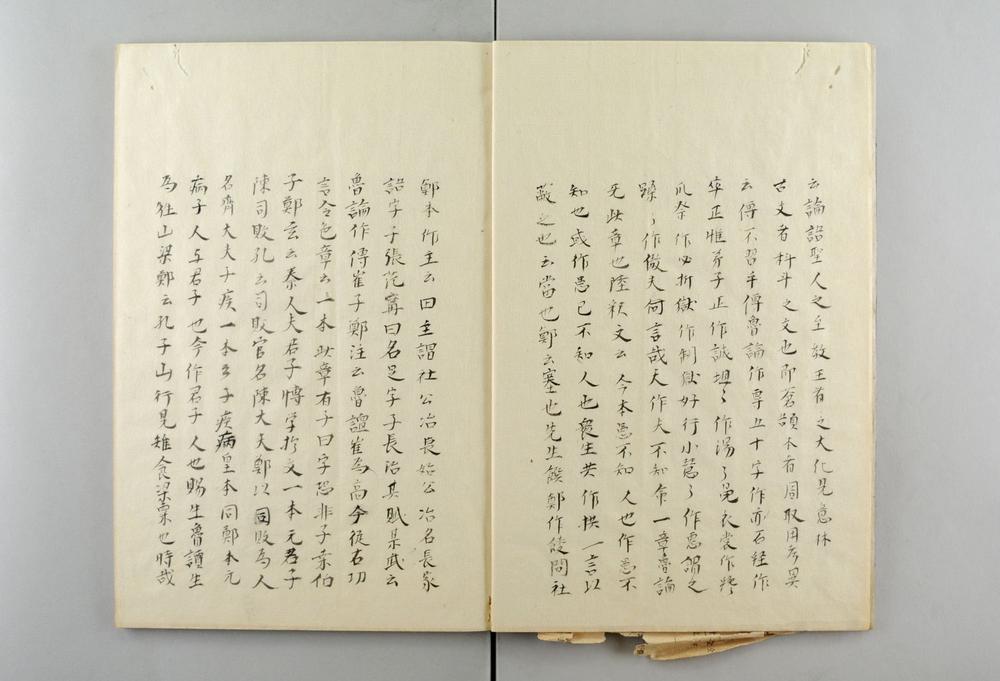 云論語聖人之至教王者之大化見意林
古文者科斗之文也即蒼頡本者周取用考異
云傳不習乎傳魯論作專五十字作亦石経作
卒正惟弟子正作誠坦〻作湯〻冕衣裳作
瓜祭作必折獄作制獄好行小慧〻作惠謂之
躁〻作傲夫何言哉天作夫不知命一章魯論
无此章也陸釈文云今本患不知人也作患不
知也或作患己不知人也衆星共作拱一言以
蔽之也云當也鄭云塞也先生饌鄭作餕問社
鄭本作主云田主謂社公冶長始公冶名長家
語字子張范甯曰名芝字子長治其賦梁武云
魯論作傅崔子鄭注云魯讀崔為高今從古巧
言令色章云一本此章有子曰字恐非子桑伯
子鄭云云秦人夫君子博学於文一本无君子
陳司敗孔云司敗官名陳大夫鄭以司敗為人
名齊大夫子疾一本云子疾病皇本同鄭本无
病子人与君子也今作君子人也賜生魯讀生
為牲山梁鄭云孔子山行見雉食梁粟也時哉